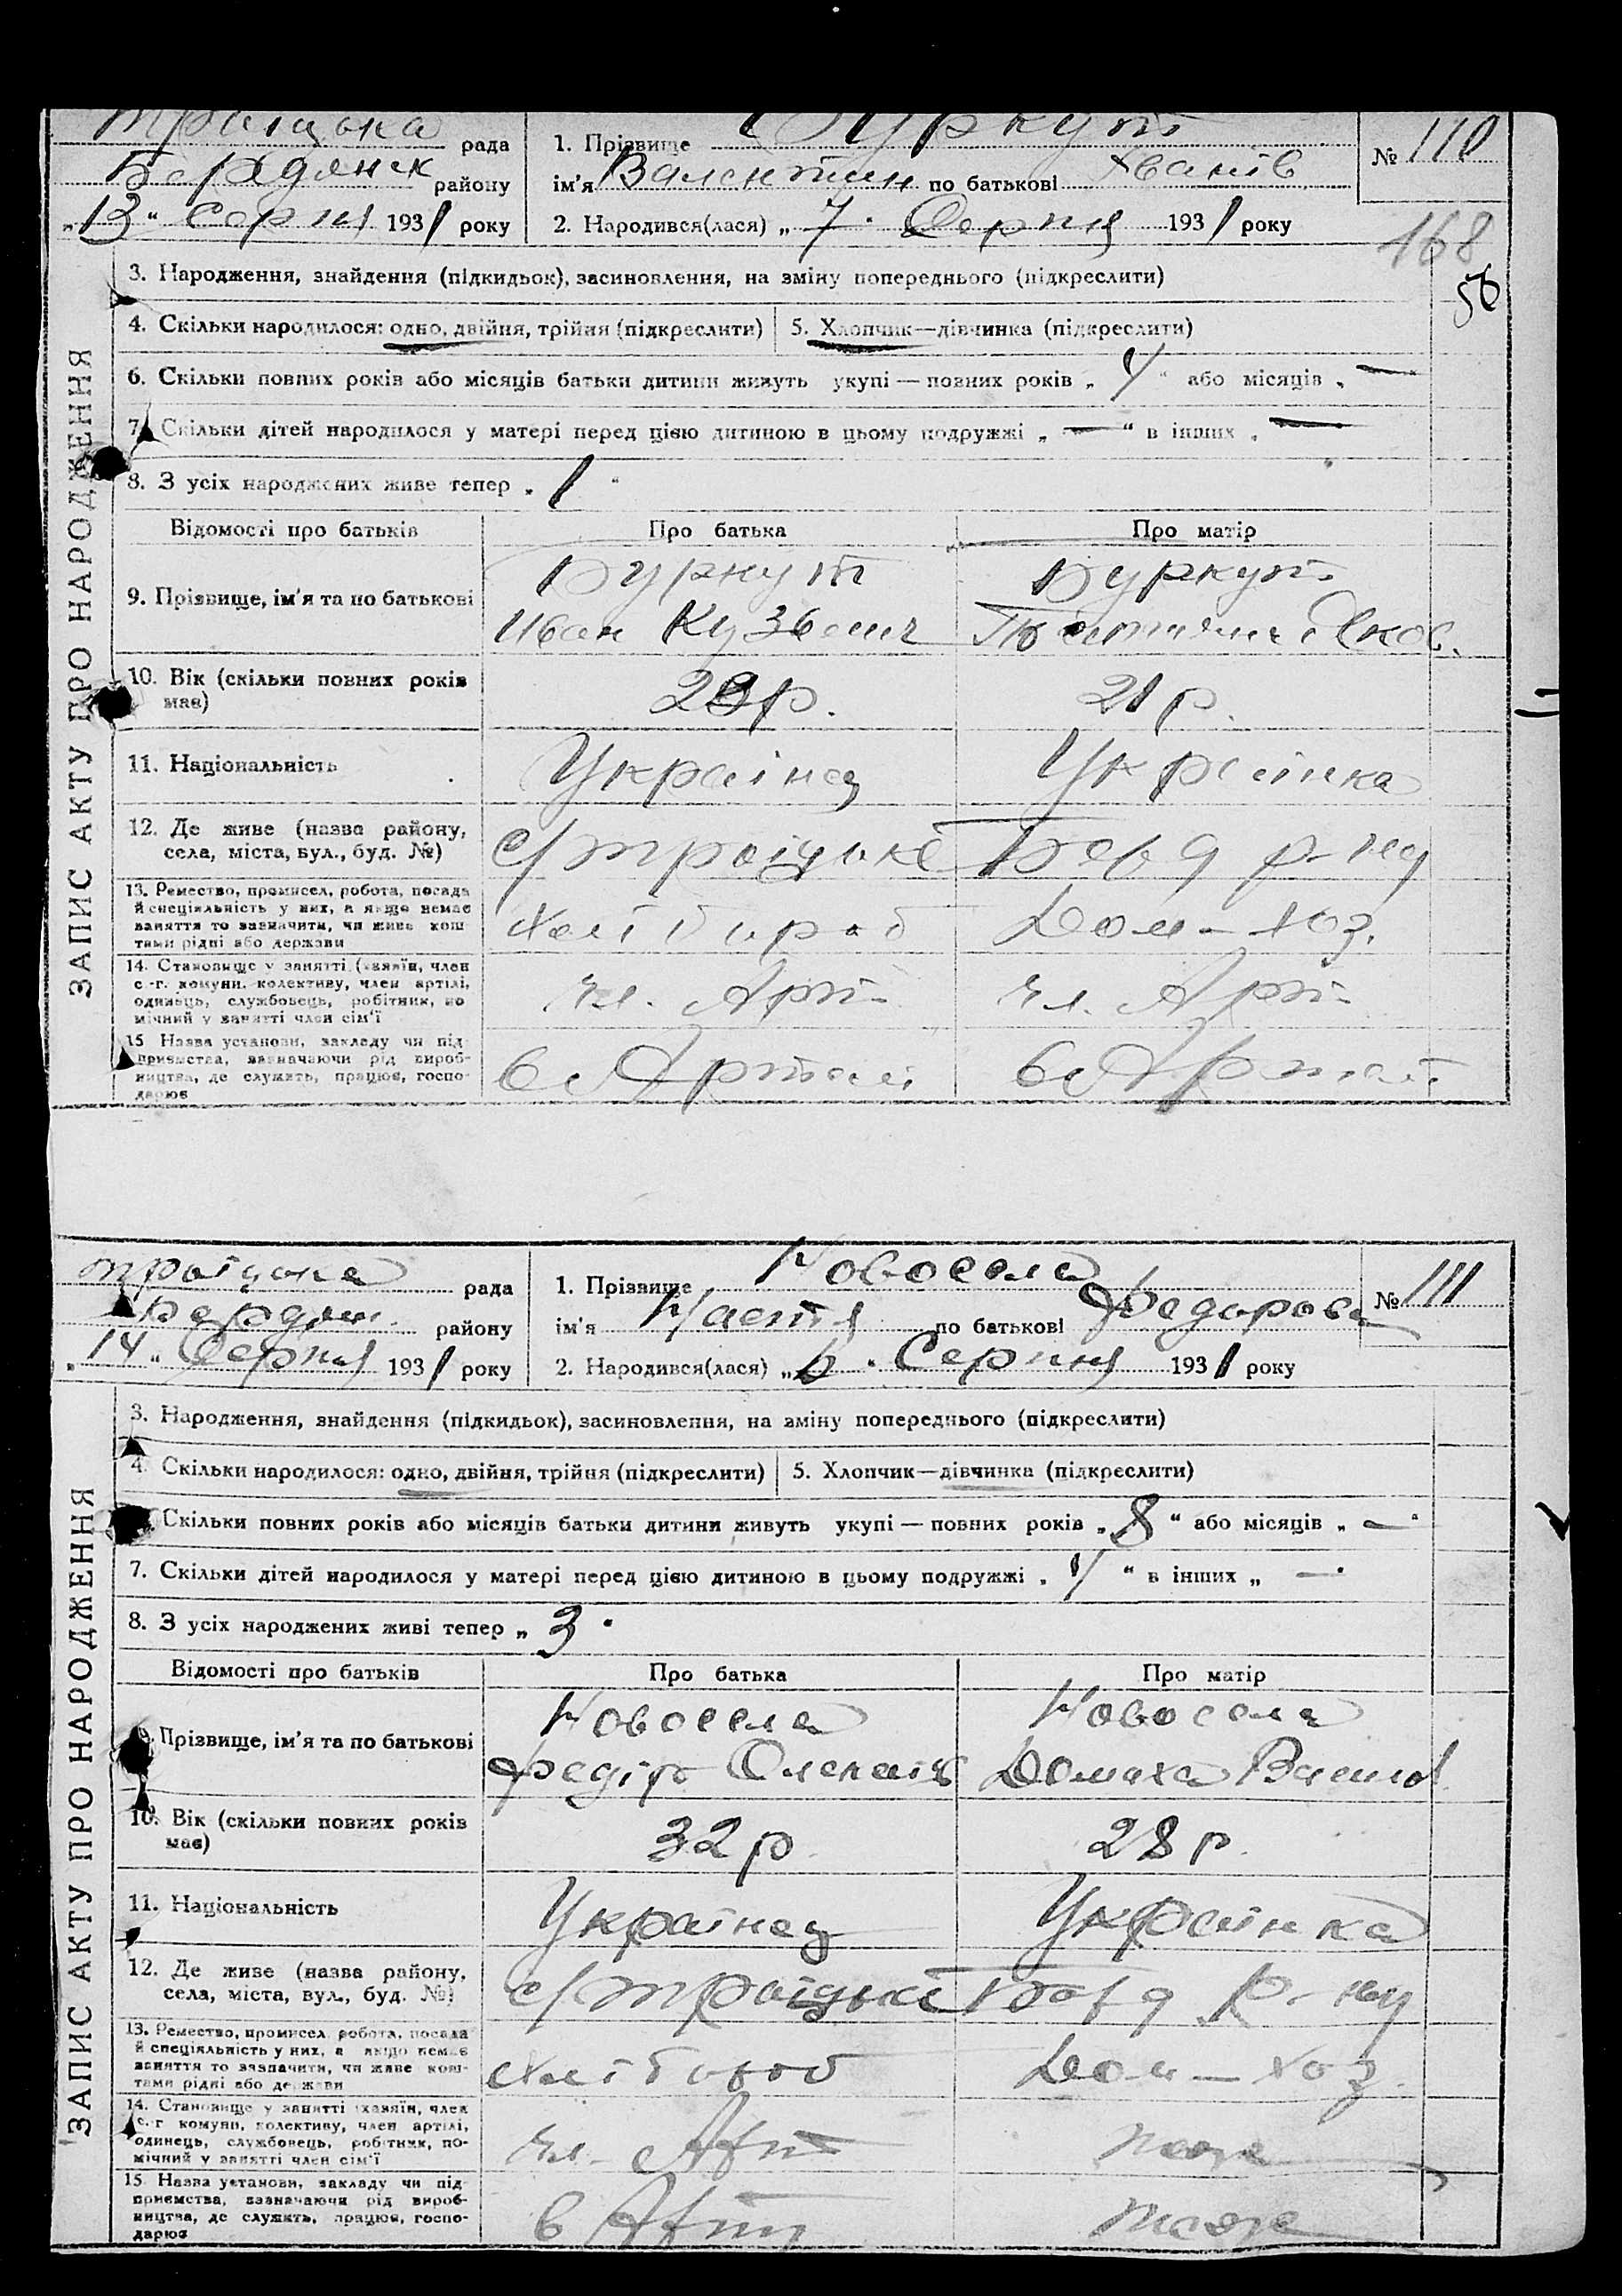 Троіцька рада
Бердянск району
„13“ Серпня 1931 року
1. Прізвище Буркут
ім'я Валентин по батькові Іванів
2. Народився(лася) „7“ Серпня 1931 року
№ 110
168
56
ЗАПИС АКТУ ПРО НАРОДЖЕННЯ
3. Народження, знайдення (підкидьок), засиновлення, на зміну попереднього (підкреслити)
4. Скільки народилося: одно, двійня, трійня (підкреслити) 5. Хлопчик—дівчинка (підкреслити)
6. Скільки повних років або місяців батьки дитини живуть укупі — повних років „4“ або місяців „—“
7. Скільки дітей народилося у матері перед цією дитиною в цьому подружжі „—“ в інших „—
8. З усіх народжених живе тепер „1“
Відомості про батьків Про батька Про матір
9. Прізвище, ім'я та по батькові
Буркут Буркут
Иван Кузьмич Яков.
10. Вік (скільки повних років
має)
р. 21 р.
11. Національність Українец Українка
12. Де живе (назва району,
села, міста, вул., буд. №)
с/Троіцьке Берд р-ну
13. Ремество, промисел, робота, посада
й спеціяльність у них, а якщо немає
заняття то зазначити, чи живе кош-
тами рідні або держави
Хлібороб Дом-хоз.
14. Становище у занятті (хазяїн, член
с.-г. комуни, колективу, член артілі,
одинець, службовець, робітник, по
мічний у занятті член сім'ї
чл. Арт- чл. Арт-
15 Назва установи, закладу чи під
приємства, зазначаючи рід вироб-
ництва, де служить, працює, госпо-
дарює
в Артелі в Артелі
Троіцька рада
Бердян. району
„14“ Серпня 1931 року
1. Прізвище Новосела
ім'я Настя по батькові Федорова
2. Народився(лася) „6“ Серпня 1931 року
№ 111
ЗАПИС АКТУ ПРО НАРОДЖЕННЯ
3. Народження, знайдення (підкидьок), засиновлення, на зміну попереднього (підкреслити)
4. Скільки народилося: одно, двійня, трійня (підкреслити) 5. Хлопчик—дівчинка (підкреслити)
Скільки повних років або місяців батьки дитини живуть укупі — повних років „8“ або місяців „—“
7. Скільки дітей народилося у матері перед цією дитиною в цьому подружжі „4“ в інших „—“
8. З усіх народжених живі тепер „3“
Відомості про батьків Про батька Про матір
9. Прізвище, ім'я та по батькові
Новосела Новосела
Федір Домаха
10. Вік (скільки повних років
має)
32 р 28 р.
11. Національність Українец Українка
12. Де живе (назва району,
села, міста, вул., буд. №)
с/Троіцькі Берд р-ну
13. Ремество, промисел, робота, посада
й спеціяльність у них, а якщо немає
заняття то зазначити, чи живе кош-
тами рідні або держави
Хлібороб Дом-хоз.
14. Становище у занятті (хазяїн, член
с.-г. комуни, колективу, член артілі,
одинець, службовець, робітник, по-
мічний у занятті член сім'ї
чл. Арт тоже
15. Назва установи, закладу чи під
приємства, зазначаючи рід вироб-
ництва, де служить, працює, госпо-
дарює
в Арті тоже